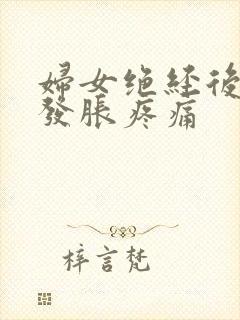 婦女绝経後
發脹疼痛
梓言梵